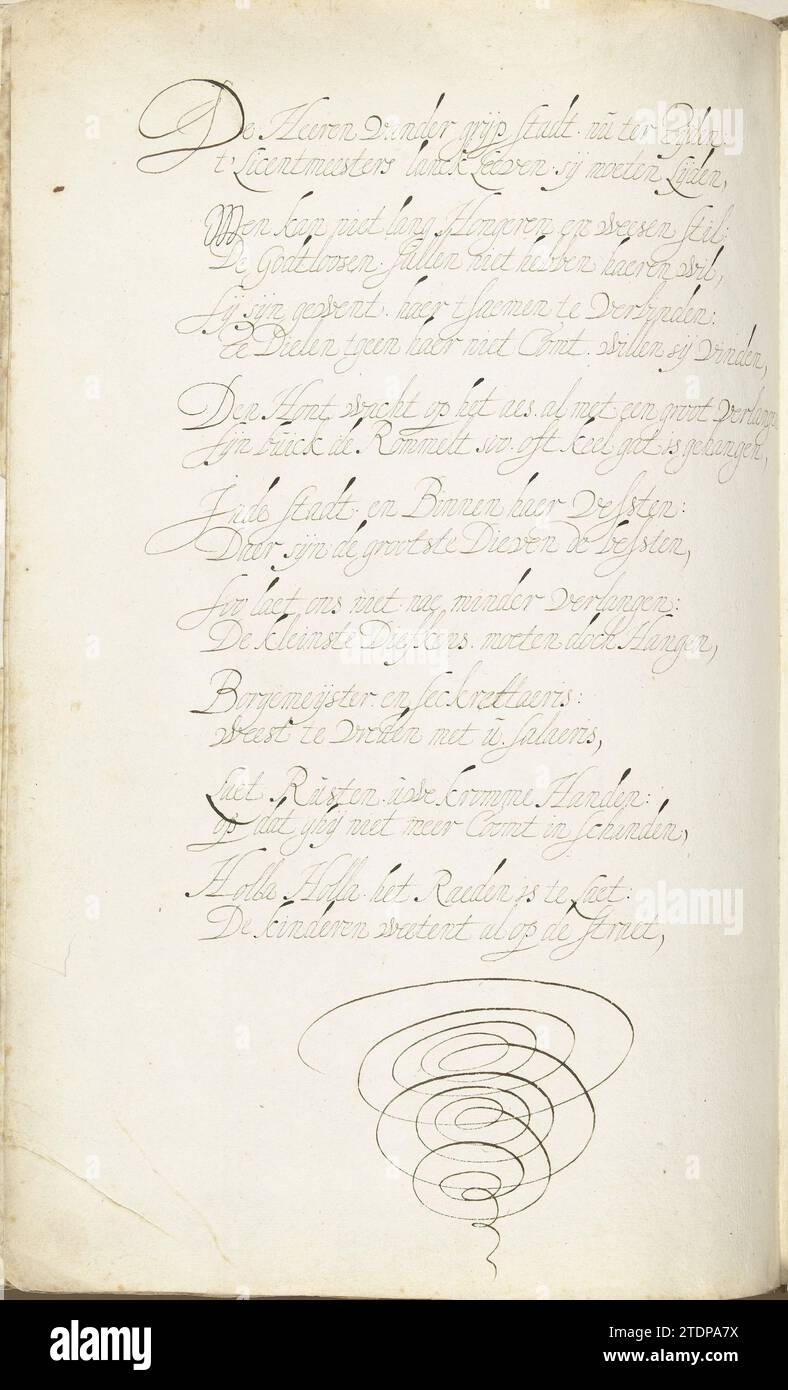 De Heeren vander grijp stadt. nú ter Tijden:
t' Licentmeesters lanck Leeven. sij moeten Lijden,
Men kan niet lang Hongeren en weesen stil:
De Godtloosen. sullen niet hebben haeren wil,
Sij sijn gewent. haer tsaemen te verbinden:
Te Dielen tgeen haer niet Comt. willen sij vinden,
Den Hont wacht op het aes. al met een groot verlangen
Sijn búick de Rommelt soo. oft keel gat is gehangen,
Inde stadt. en Binnen haer vessten:
Daer sijn. de grootste Dieven de bessten,
Soo laet ons niet. nae minder verlangen:
De kleinste Diefkens. moeten doch Hangen,
Borgemeijster. en seckrettaeris:
weest te vreden met ú. salaeris,
Laet Rústen. úwe kromme Handen:
op dat ghij niet meer Coomt in schanden,
Holla Holla. het Raeden is te Laet:
De kinderen weetent al op de straet,
alamy
www.alamy.com
Image ID: 2TDPA7X